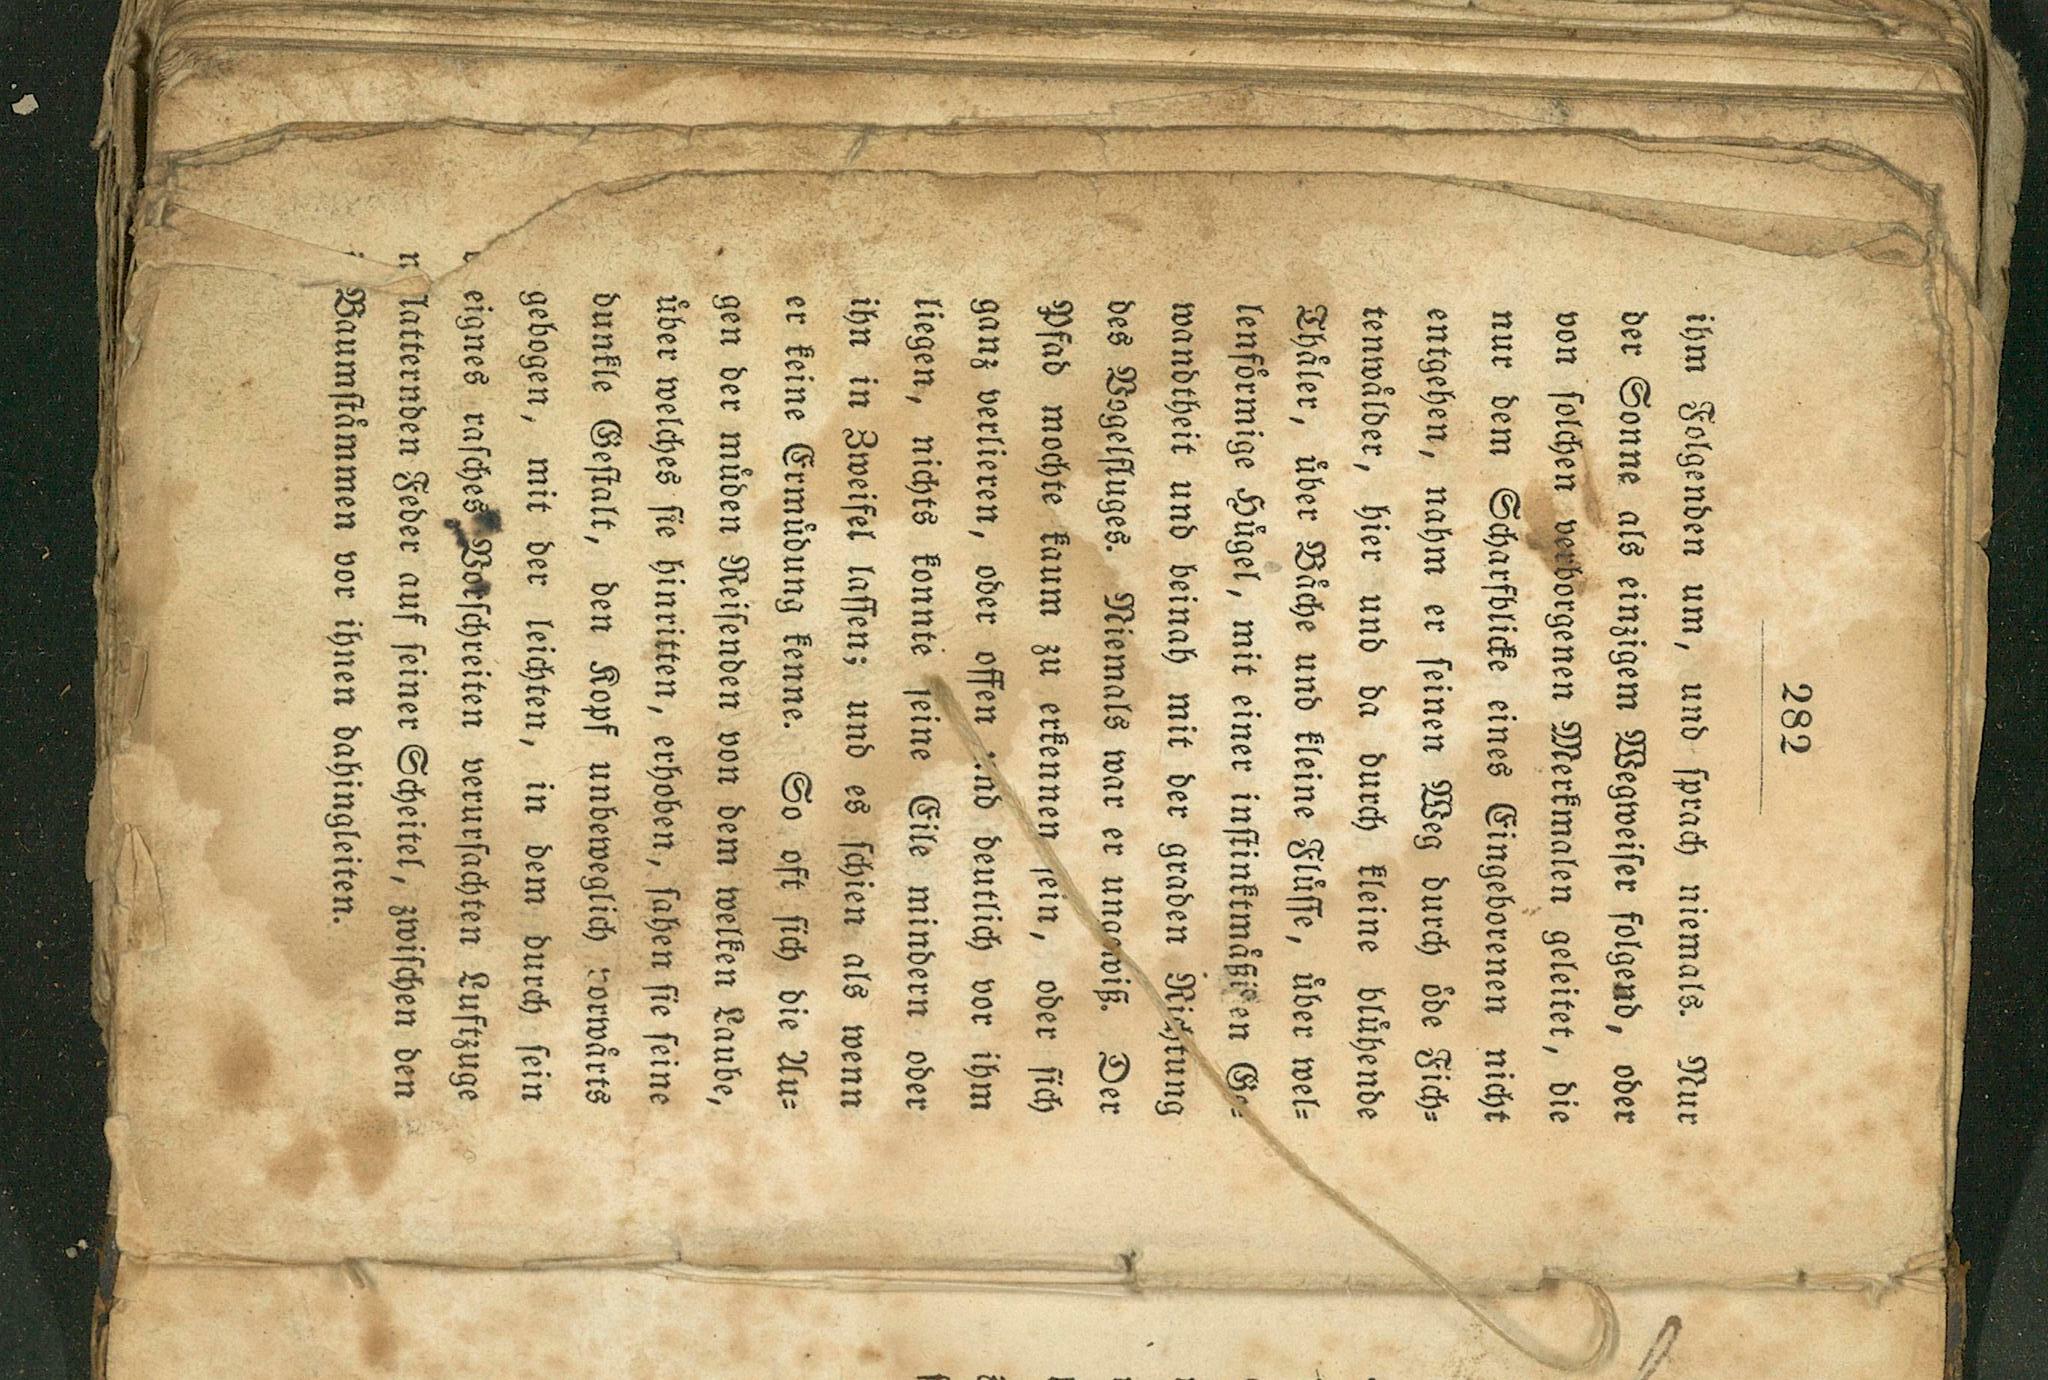 282
ihm Folgenden um, und sprach niemals. Nur
der Sonne als einzigem Wegweiser folgend, oder
von solchen verborgenen Merkmalen geleitet, die
nur dem Scharfblicke eines Eingeborenen nicht
entgehen, nahm er seinen Weg durch öde Fich-
tenwälder, hier und da durch kleine blühende
Thäler, über Bäche und kleine Flüsse, über wel-
lenförmige Hügel, mit einer instinktmäßigen Ge-
wandtheit und beinah mit der graden Richtung
des Vogelfluges. Niemals war er ungewiß. Der
Pfad mochte kaum zu erkennen sein, oder sich
ganz verlieren, oder offen und deutlich vor ihm
liegen, nichts konnte seine Eile mindern oder
ihn in Zweifel lassen; und es schien als wenn
er keine Ermüdung kenne. So oft sich die Au-
gen der müden Reisenden von dem welken Laube,
über welches sie hinritten, erhoben, sahen sie seine
dunkle Gestalt, den Kopf unbeweglich vorwärts
gebogen, mit der leichten, in dem durch sein
eignes rasches Vorschreiten verursachten Luftzuge
flatternden Feder auf seiner Scheitel, zwischen den
Baumstämmen vor ihnen dahingleiten.